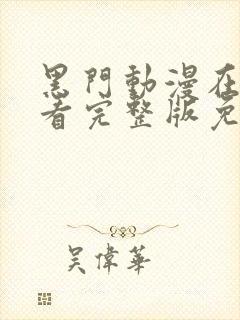 黑門動漫在
看完整版免
吳偉華